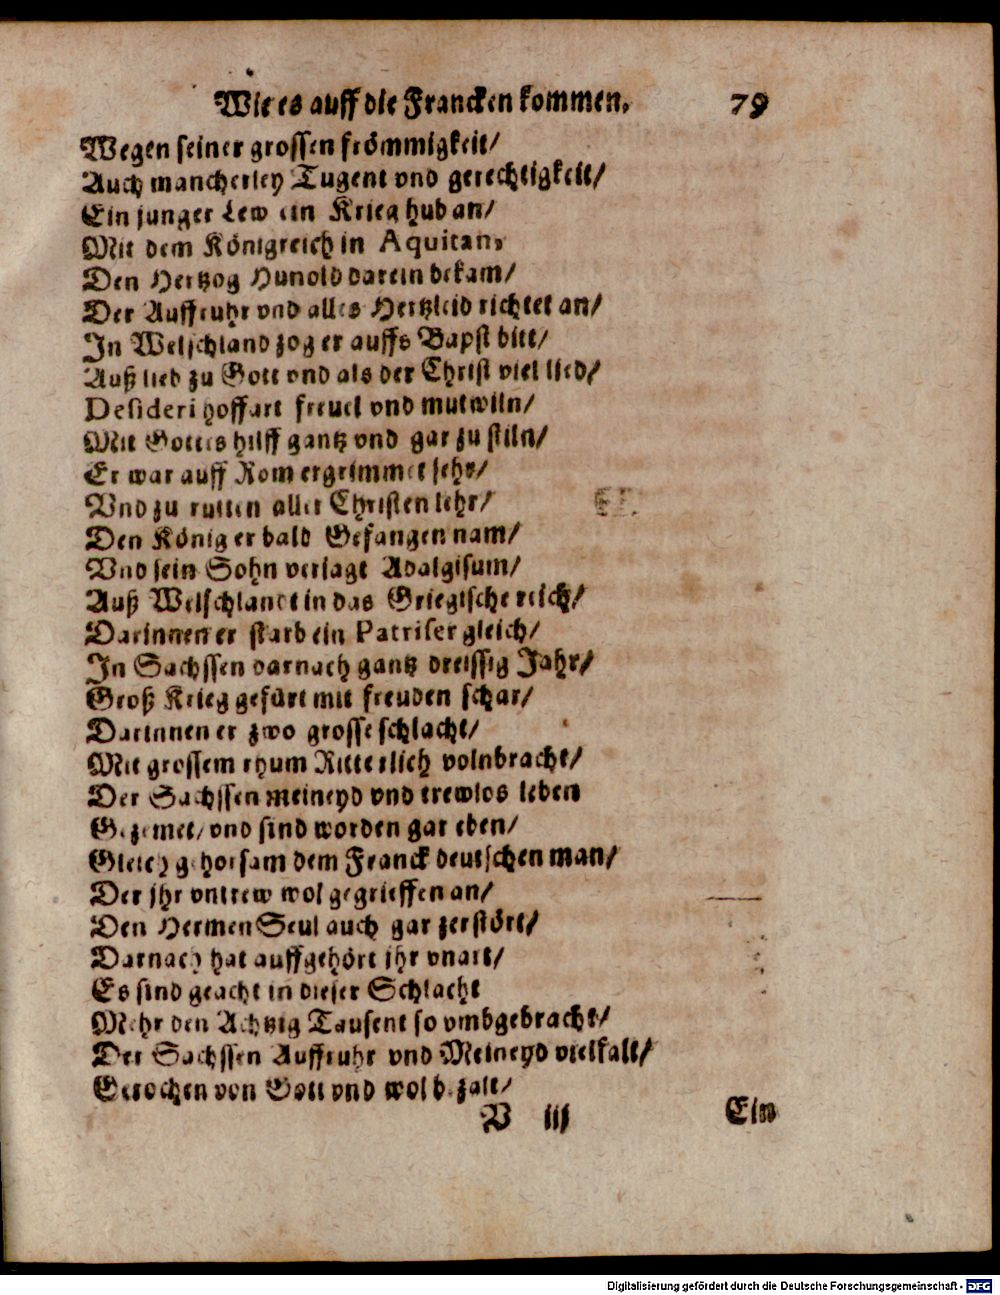 Wie es auff die Francken kommen. 79
Wegen seiner grossen frömmigkeit/
Auch mancherley Tugent vnd gerechtigkeit/
Ein junger Lew ein Krieg hub an/
Mit dem Königreich in Aquitan,
Den Hertzog Hunold darein bekam/
Der Auffruhr vnd alles Hertzleid richtet an/
In Welschland zog er auffs Bapst bitt/
Auß lieb zu Gott vnd als der Christ viel lied/
Desideri hoffart freuel vnd mutwiln/
Mit Gottes hilff gantz vnd gar zu stiln/
Er war auff Rom ergrimmet sehr/
Vnd zu rutten aller Christen lehr/
Den König er bald Gefangen nam/
Vnd sein Sohn veriagt Adalgisum/
Auß Welschlandt in das Griegische reich/
Darinnen er starb ein Patriser gleich/
In Sachssen darnach gantz dreissig Jahr/
Groß Krieg gefürt mit freuden schar/
Darinnen er zwo grosse schlacht/
Mit grossem rhum Ritterlich volnbracht/
Der Sachssen meineyd vnd trewlos leben
Gezemet/ vnd sind worden gar eben/
Gleich gehorsam dem Franck deutschen man/
Der jhr vntrew wol gegrieffen an/
Den Hermen Seul auch gar zerstört/
Darnach hat auffgehört jhr vnart/
Es sind geacht in dieser Schlacht
Mehr den Achtzig Tausent so vmbgebracht/
Der Sachssen Auffruhr vnd Meineyd vielfalt/
Gerochen von Gott vnd wol bezalt/
V iij Ein
Digitalisierung gefördert durch die Deutsche Forschungsgemeinschaft - DFG